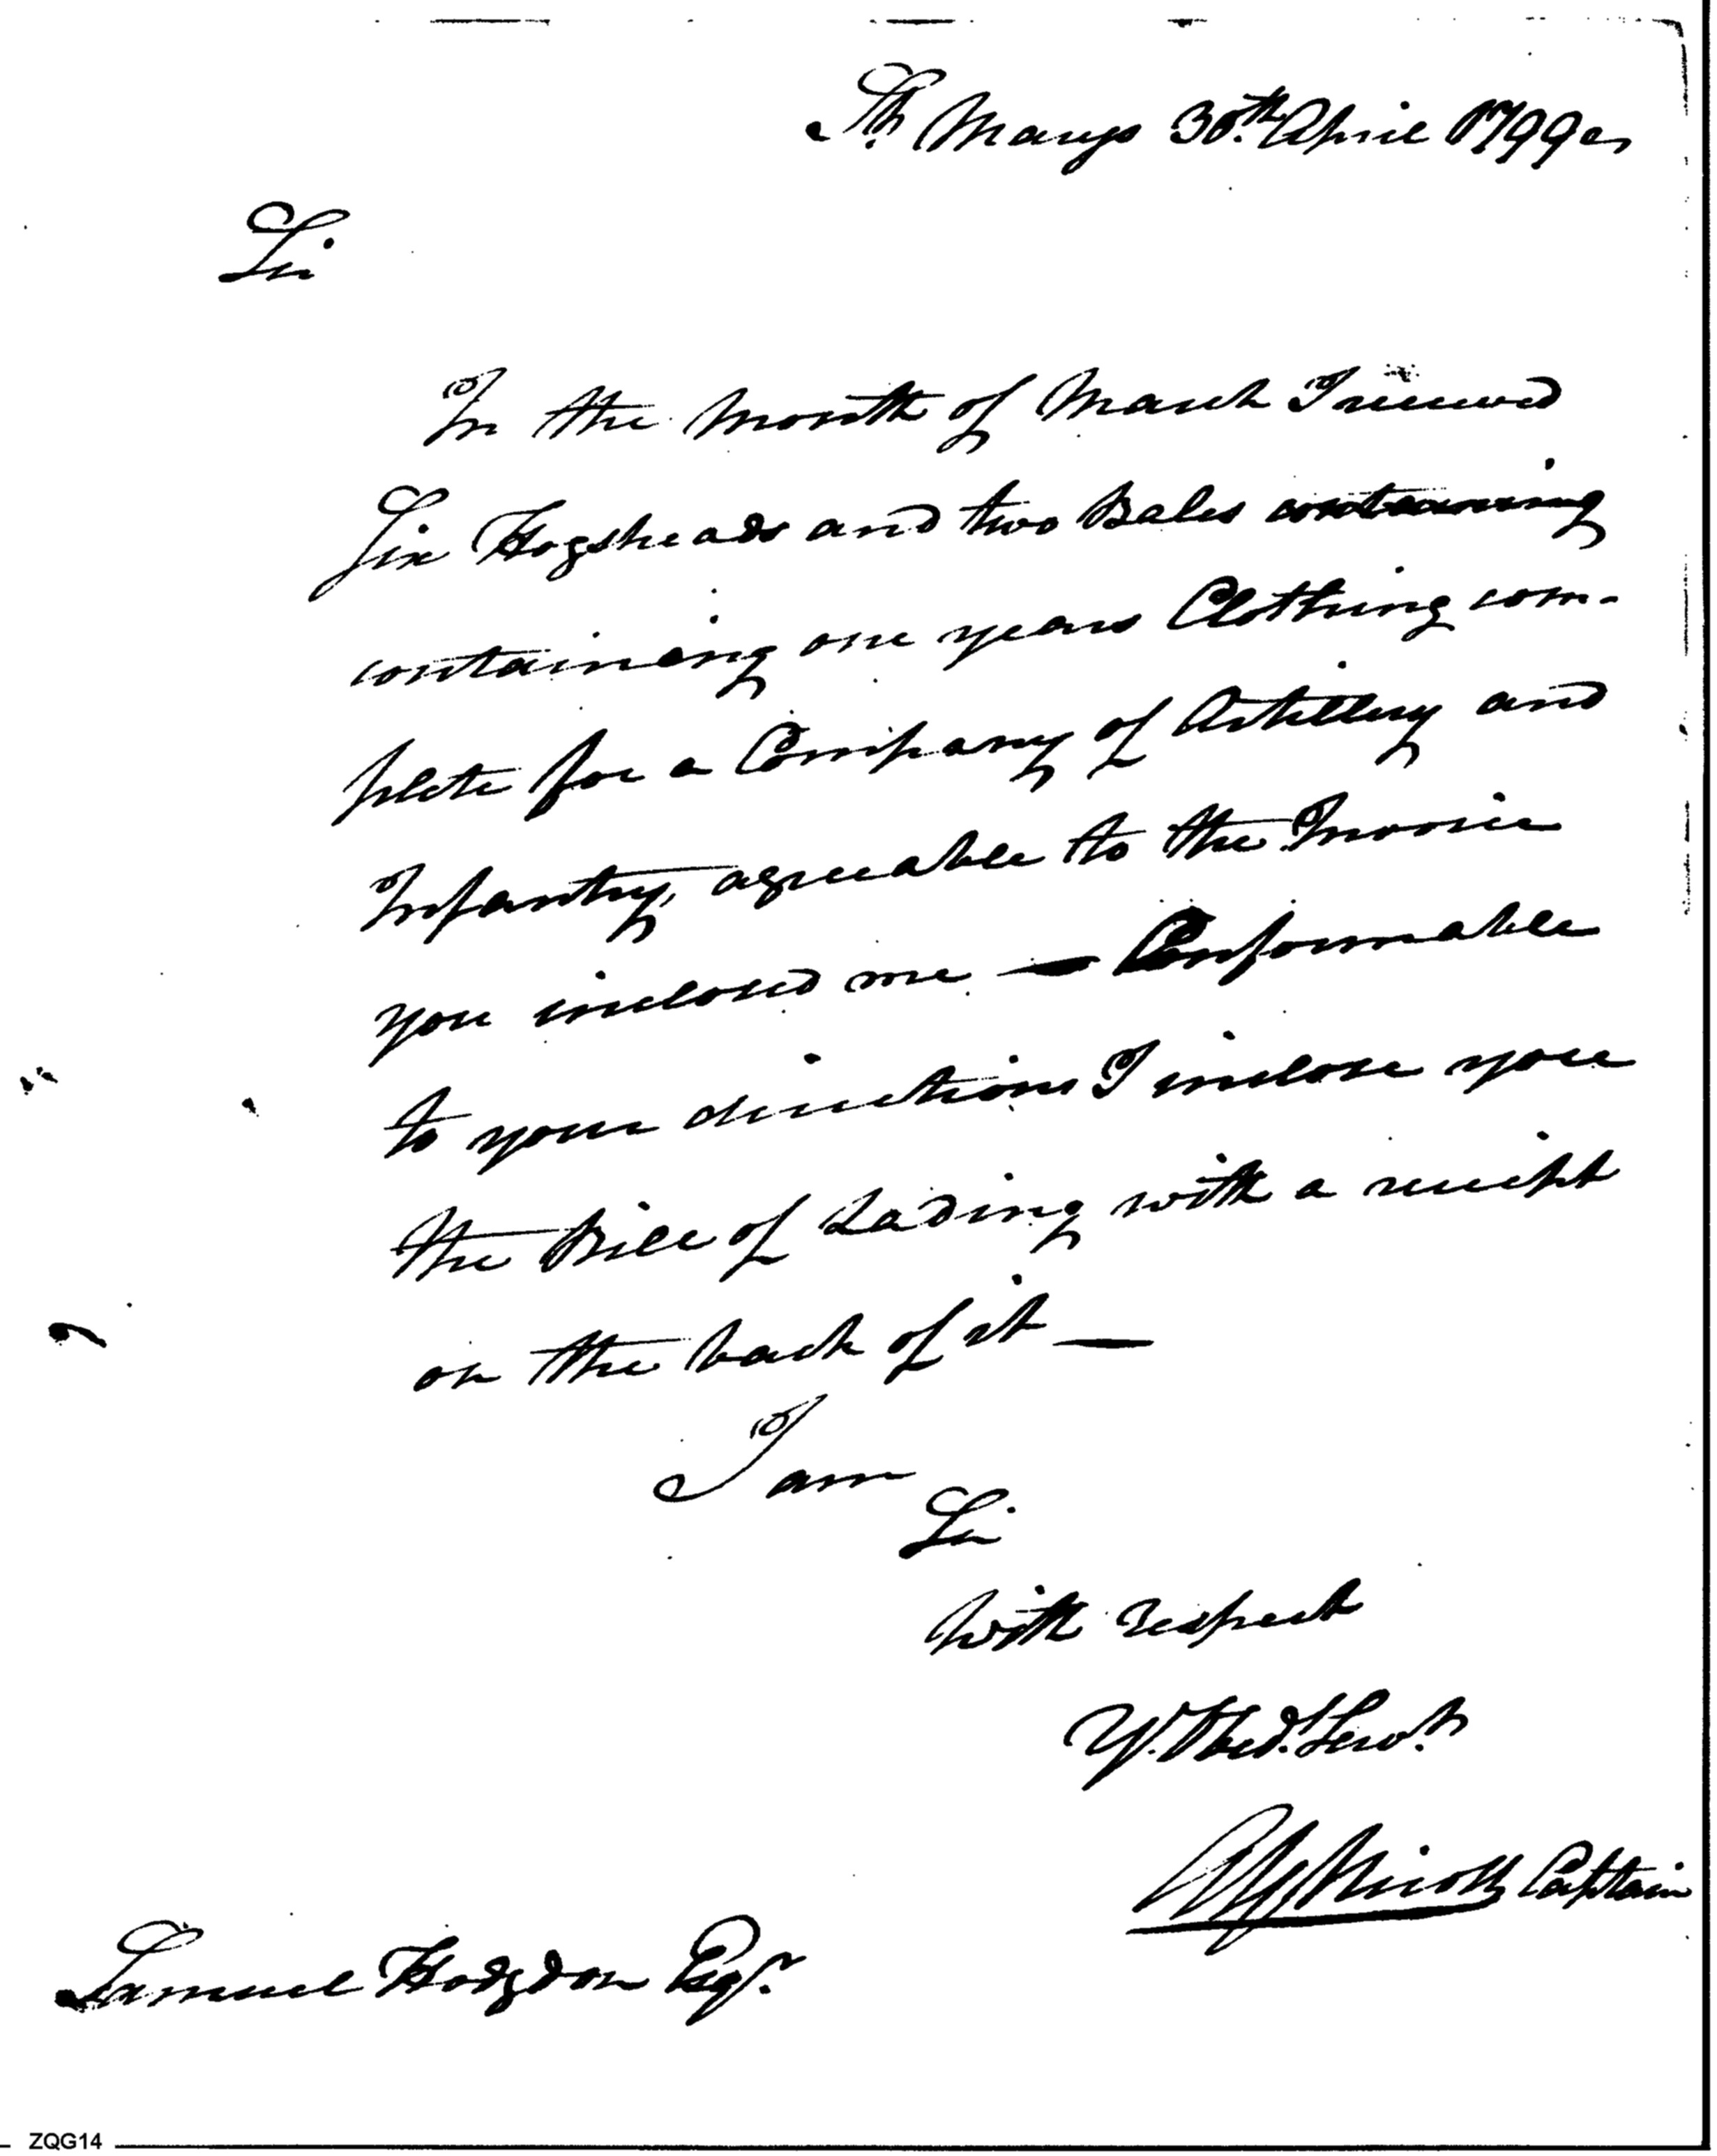 St. Marys 30th. April 1799
Sir
In the Month of March I received
Six Hogsheads and two Bales containing
containing one years Clothing com-
plete for a Company of Artillery and
Infantry, agreeable to the Invoice
you inclosed me — Conformable
to your directions I inclose you
the Bill of Lading with a receipt
on the back of it —
I am
Sir
With respect
Y. Obed. Servt.
Captain
Samuel Hodgdon Esqr.
ZQG14